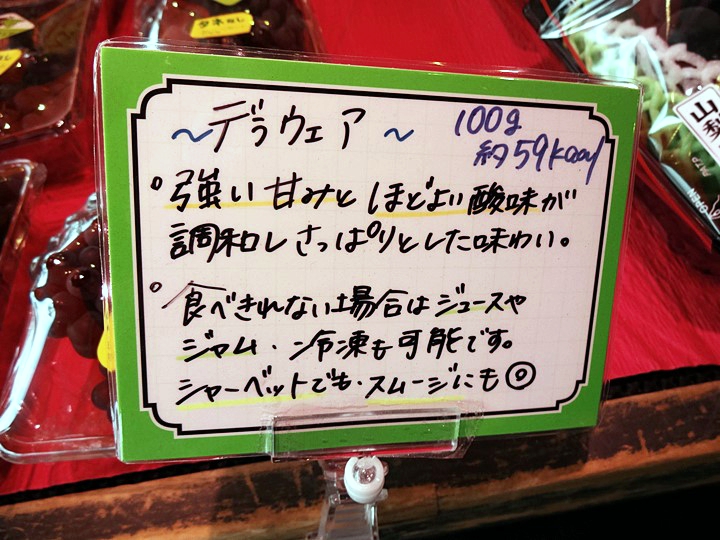 タネなし
～デラウェア～
100g
約59kcal
。強い甘みとほどよい酸味が
調和しさっぱりとした味わい。
。食べきれない場合はジュースや
ジャム・冷凍も可能です。
シャーベットでも・スムージにも◎
山